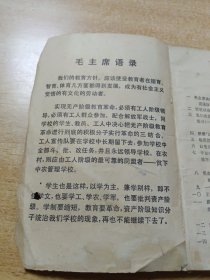 毛主席语录
我们的教育方针，应该使受教育者在德育、
智育、体育几方面都得到发展，成为有社会主义
觉悟的有文化的劳动者。
实现无产阶级教育革命，必须有工人阶级领
导，必须有工人群众参加，配合解放军战士，同
学校的学生、教员、工人中决心把无产阶级教育
革命进行到底的积极分子实行革命的三结合。
工人宣传队要在学校中长期留下去，参加学校中
全部斗、批、改任务，并且永远领导学校。在农
村，则应由工人阶级的最可靠的同盟者——贫下
中农管理学校。
学生也是这样，以学为主，兼学别样，即不
但学文，也要学工、学农、学军，也要批判资产阶
级。学制要缩短，教育要革命，资产阶级知识分
子统治我们学校的现象，再也不能继续下去了。